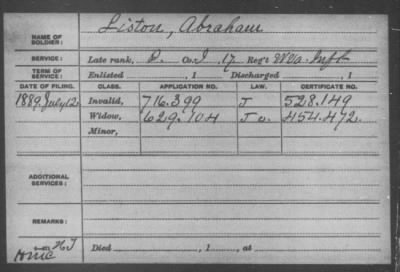 NAME OF SOLDIER: Liston, Abraham
SERVICE: Late rank, P. Co. I, 17 Reg't W Va. Inft
TERM OF SERVICE: Enlisted , 1 Discharged , 1
DATE OF FILING. CLASS. APPLICATION NO. LAW. CERTIFICATE NO.
1889 July 12 Invalid, 716.399 J 528.149
Widow, 629.104 J 454.472
Minor,
ADDITIONAL SERVICES:
REMARKS:
Died , 1 , at